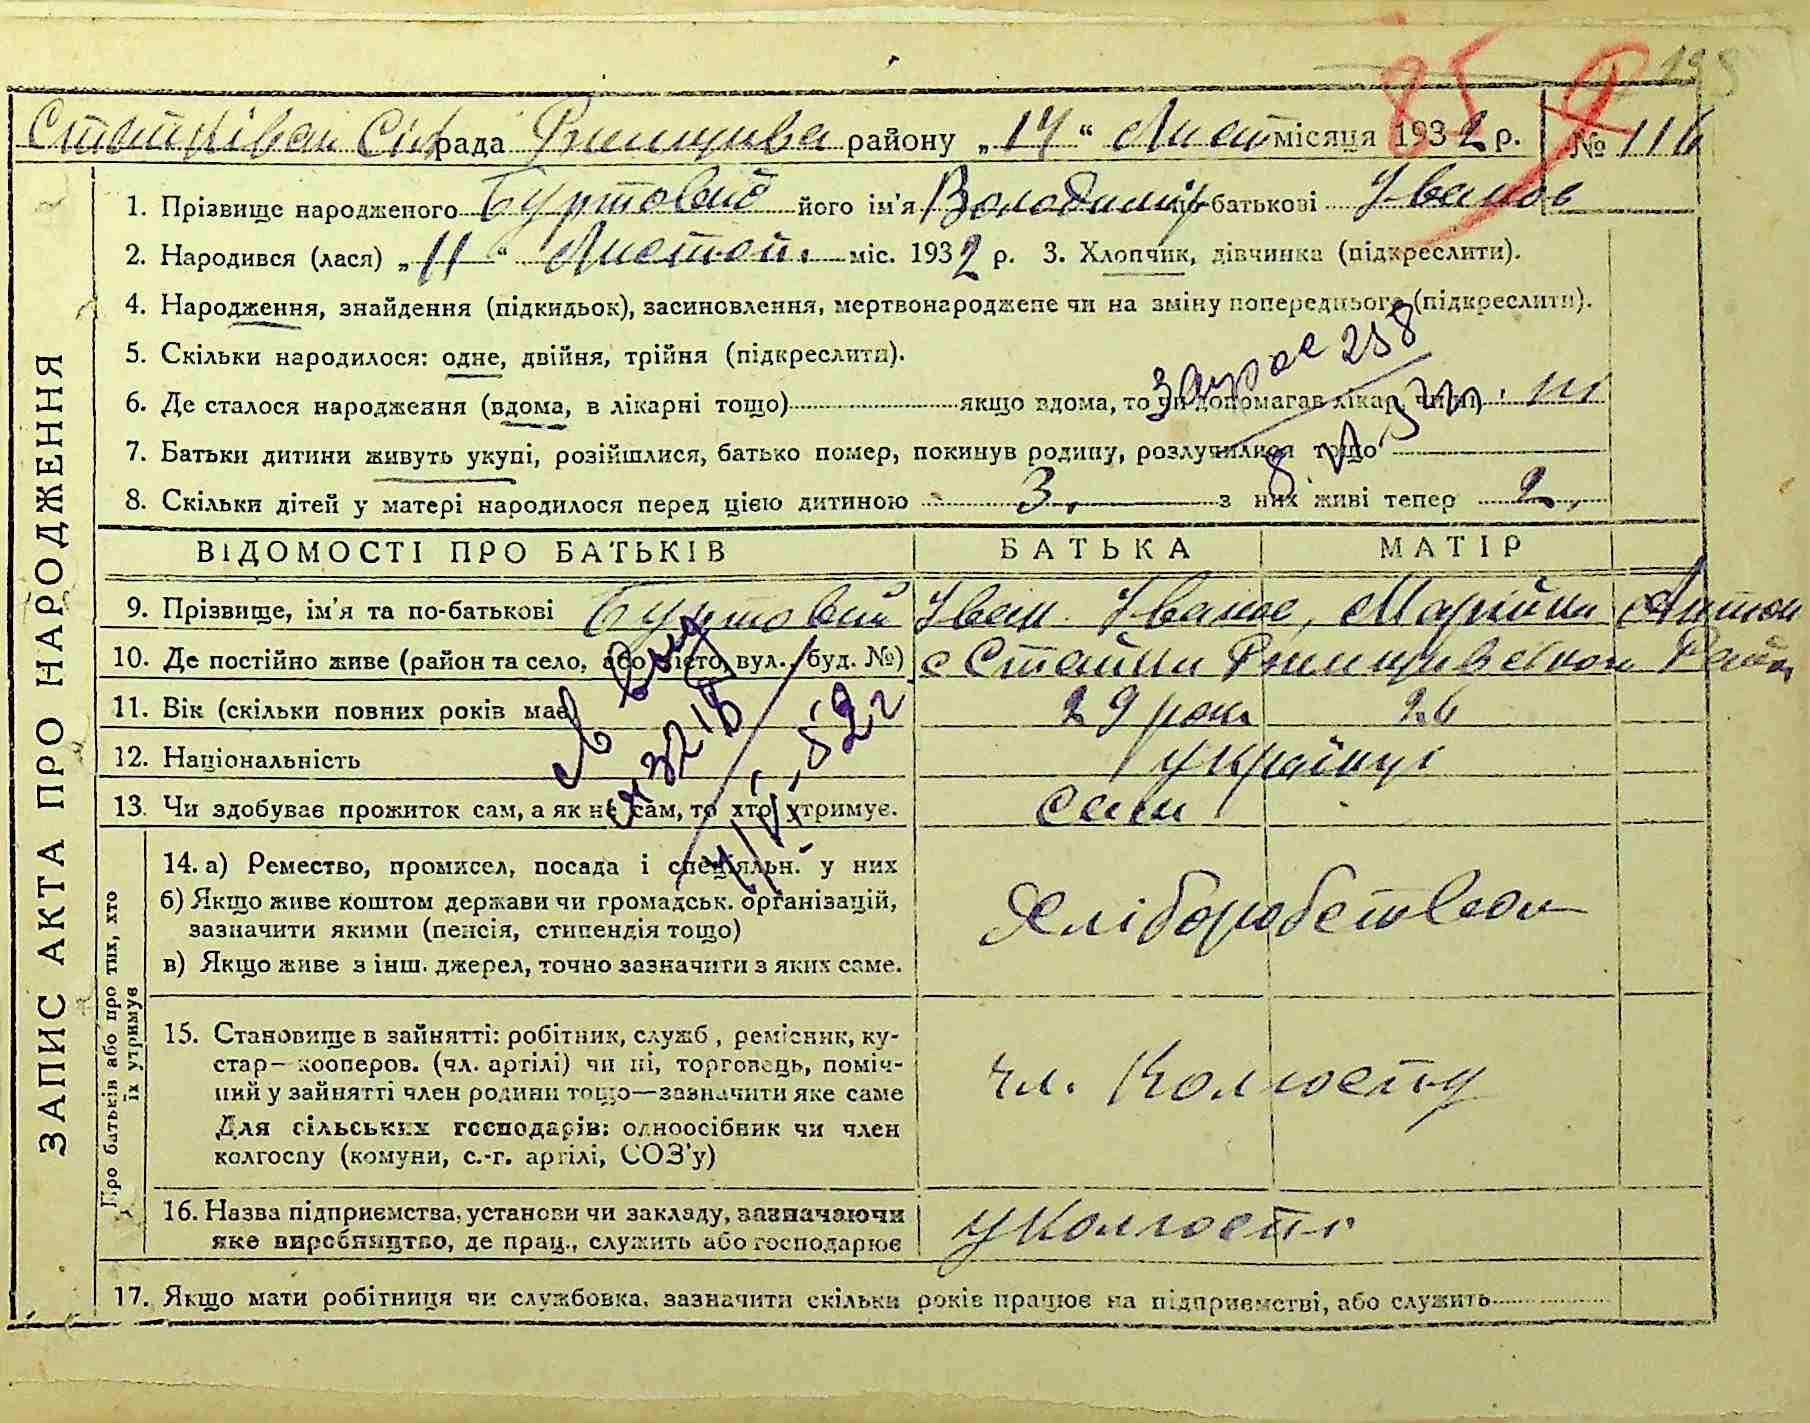 85 198
рада району „14“ Лист місяця 1932 р. № 116
ЗАПИС АКТА ПРО НАРОДЖЕННЯ
1. Прізвище народженого Буртовий його ім'я Володимир по-батькові Іванов
2. Народився (лася) „11“ Листоп. міс. 1932 р. 3. Хлопчик, дівчинка (підкреслити).
4. Народження, знайдення (підкидьок), засиновлення, мертвонароджене чи на зміну попереднього (підкреслити).
5. Скільки народилося: одне, двійня, трійня (підкреслити).
6. Де сталося народження (вдома, в лікарні тощо) якщо вдома, то чи допомагав лікар, чи ні) ні
7. Батьки дитини живуть укупі, розійшлися, батько помер, покинув родину, розлучилися тощо
8. Скільки дітей у матері народилося перед цією дитиною 3. з них живі тепер 2.
ВІДОМОСТІ ПРО БАТЬКІВ БАТЬКА МАТІР
9. Прізвище, ім'я та по-батькові Буртовий Іван Іванов, Марійка Антон
10. Де постійно живе (район та село, або місто, вул., буд. №) с Стайки
11. Вік (скільки повних років має) 29 рок. 26
12. Національність українці
13. Чи здобуває прожиток сам, а як не сам, то хто утримує. сами
Про батьків або про тих, хто їх утримує
14. а) Ремество, промисел, посада і спеціяльн. у них
б) Якщо живе коштом держави чи громадськ. організацій,
зазначити якими (пенсія, стипендія тощо)
Хліборобством
в) Якщо живе з інш. джерел, точно зазначити з яких саме.
15. Становище в зайнятті: робітник, служб., ремісник, ку-
стар—кооперов. (чл. артілі) чи ні, торговець, поміч-
ний у зайнятті член родини тощо—зазначити яке саме
чл. Колгоспу
Для сільських господарів: одноосібник чи член
колгоспу (комуни, с.-г. артілі, СОЗ'у)
16. Назва підприємства, установи чи закладу, зазначаючи
яке виробництво, де прац., служить або господарює
у Колгоспі
17. Якщо мати робітниця чи службовка, зазначити скільки років працює на підприємстві, або служить